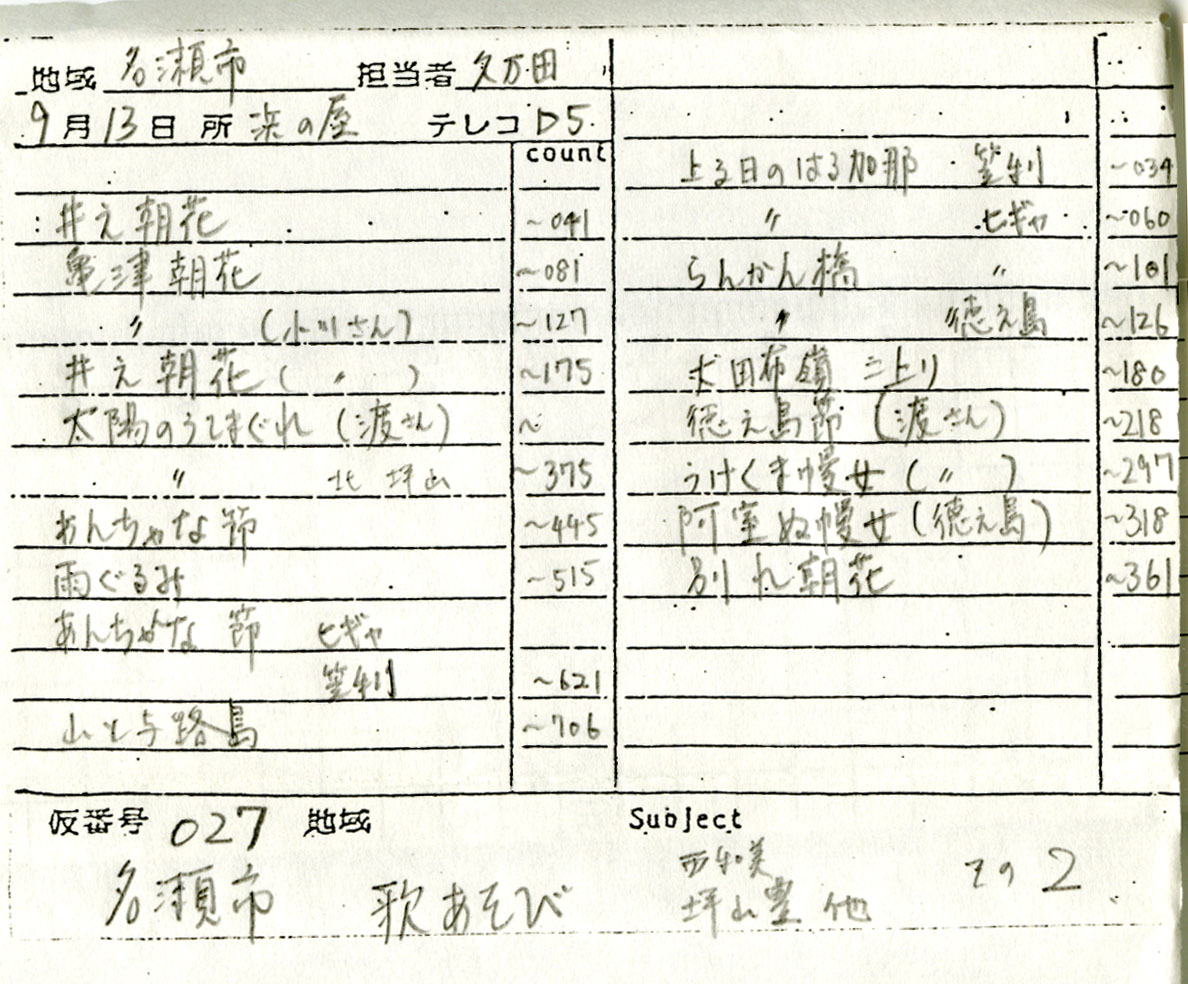 地域 名瀬市 担当者 久万田
9月13日 所 浜の屋 テレコ D5
count
井え朝花 ~041
亀津朝花 ~081
〃 (小川さん) ~127
井え朝花 ( 〃 ) ~175
太陽のうてまぐれ (渡さん) ~
〃 北 坪山 ~375
あんちゃな節 ~445
雨ぐるみ ~515
あんちゃな節 ヒギャ
笠利 ~621
山と与路島 ~706
上る日のはる加那 笠利 ~034
〃 ヒギャ ~060
らんかん橋 〃 ~101
〃 徳之島 ~126
犬田布嶺 二上り ~180
徳之島節 (渡さん) ~218
うけくま慢女 (〃) ~297
阿室ぬ慢女 (徳之島) ~318
別れ朝花 ~361
仮番号 027 地域 Subject
名瀬市 歌あそび
西和美
坪山豊 他 その2